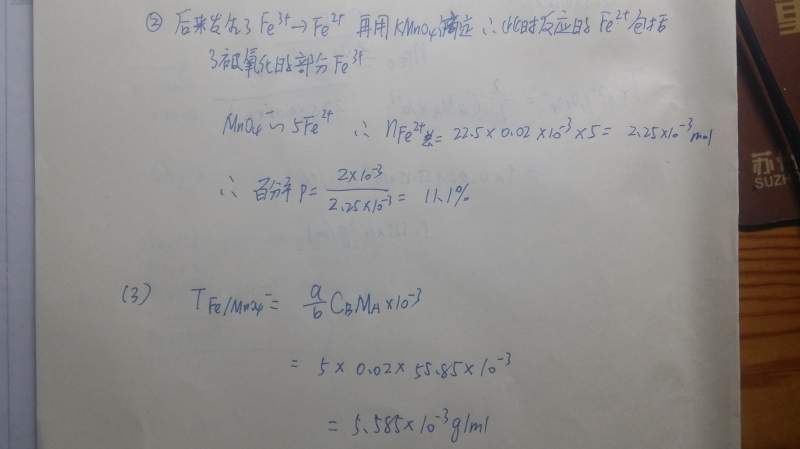 ② 后来发生了 Fe³⁺→Fe²⁺ 再用KMnO₄滴定 ∴此时反应的 Fe²⁺包括
了被氧化的部分Fe³⁺
MnO₄⁻ ~ 5Fe²⁺ ∴ nFe²⁺总= 22.5×0.02×10⁻³×5= 2.25×10⁻³mol
∴ 百分率 P= 2×10⁻³/2.25×10⁻³ = 11.1%
苏
SUZH
(3) T Fe/MnO₄⁻ = a/b C_B M_A ×10⁻³
= 5×0.02×55.85×10⁻³
= 5.585×10⁻³g/ml